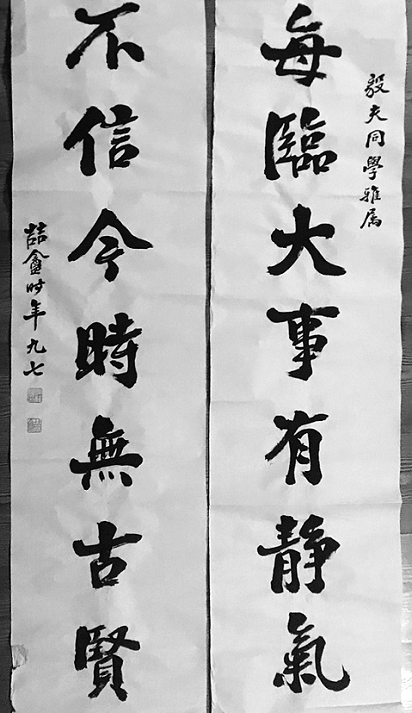 毅夫同學雅属
每臨大事有静氣
不信今時無古賢
喆盦时年九七